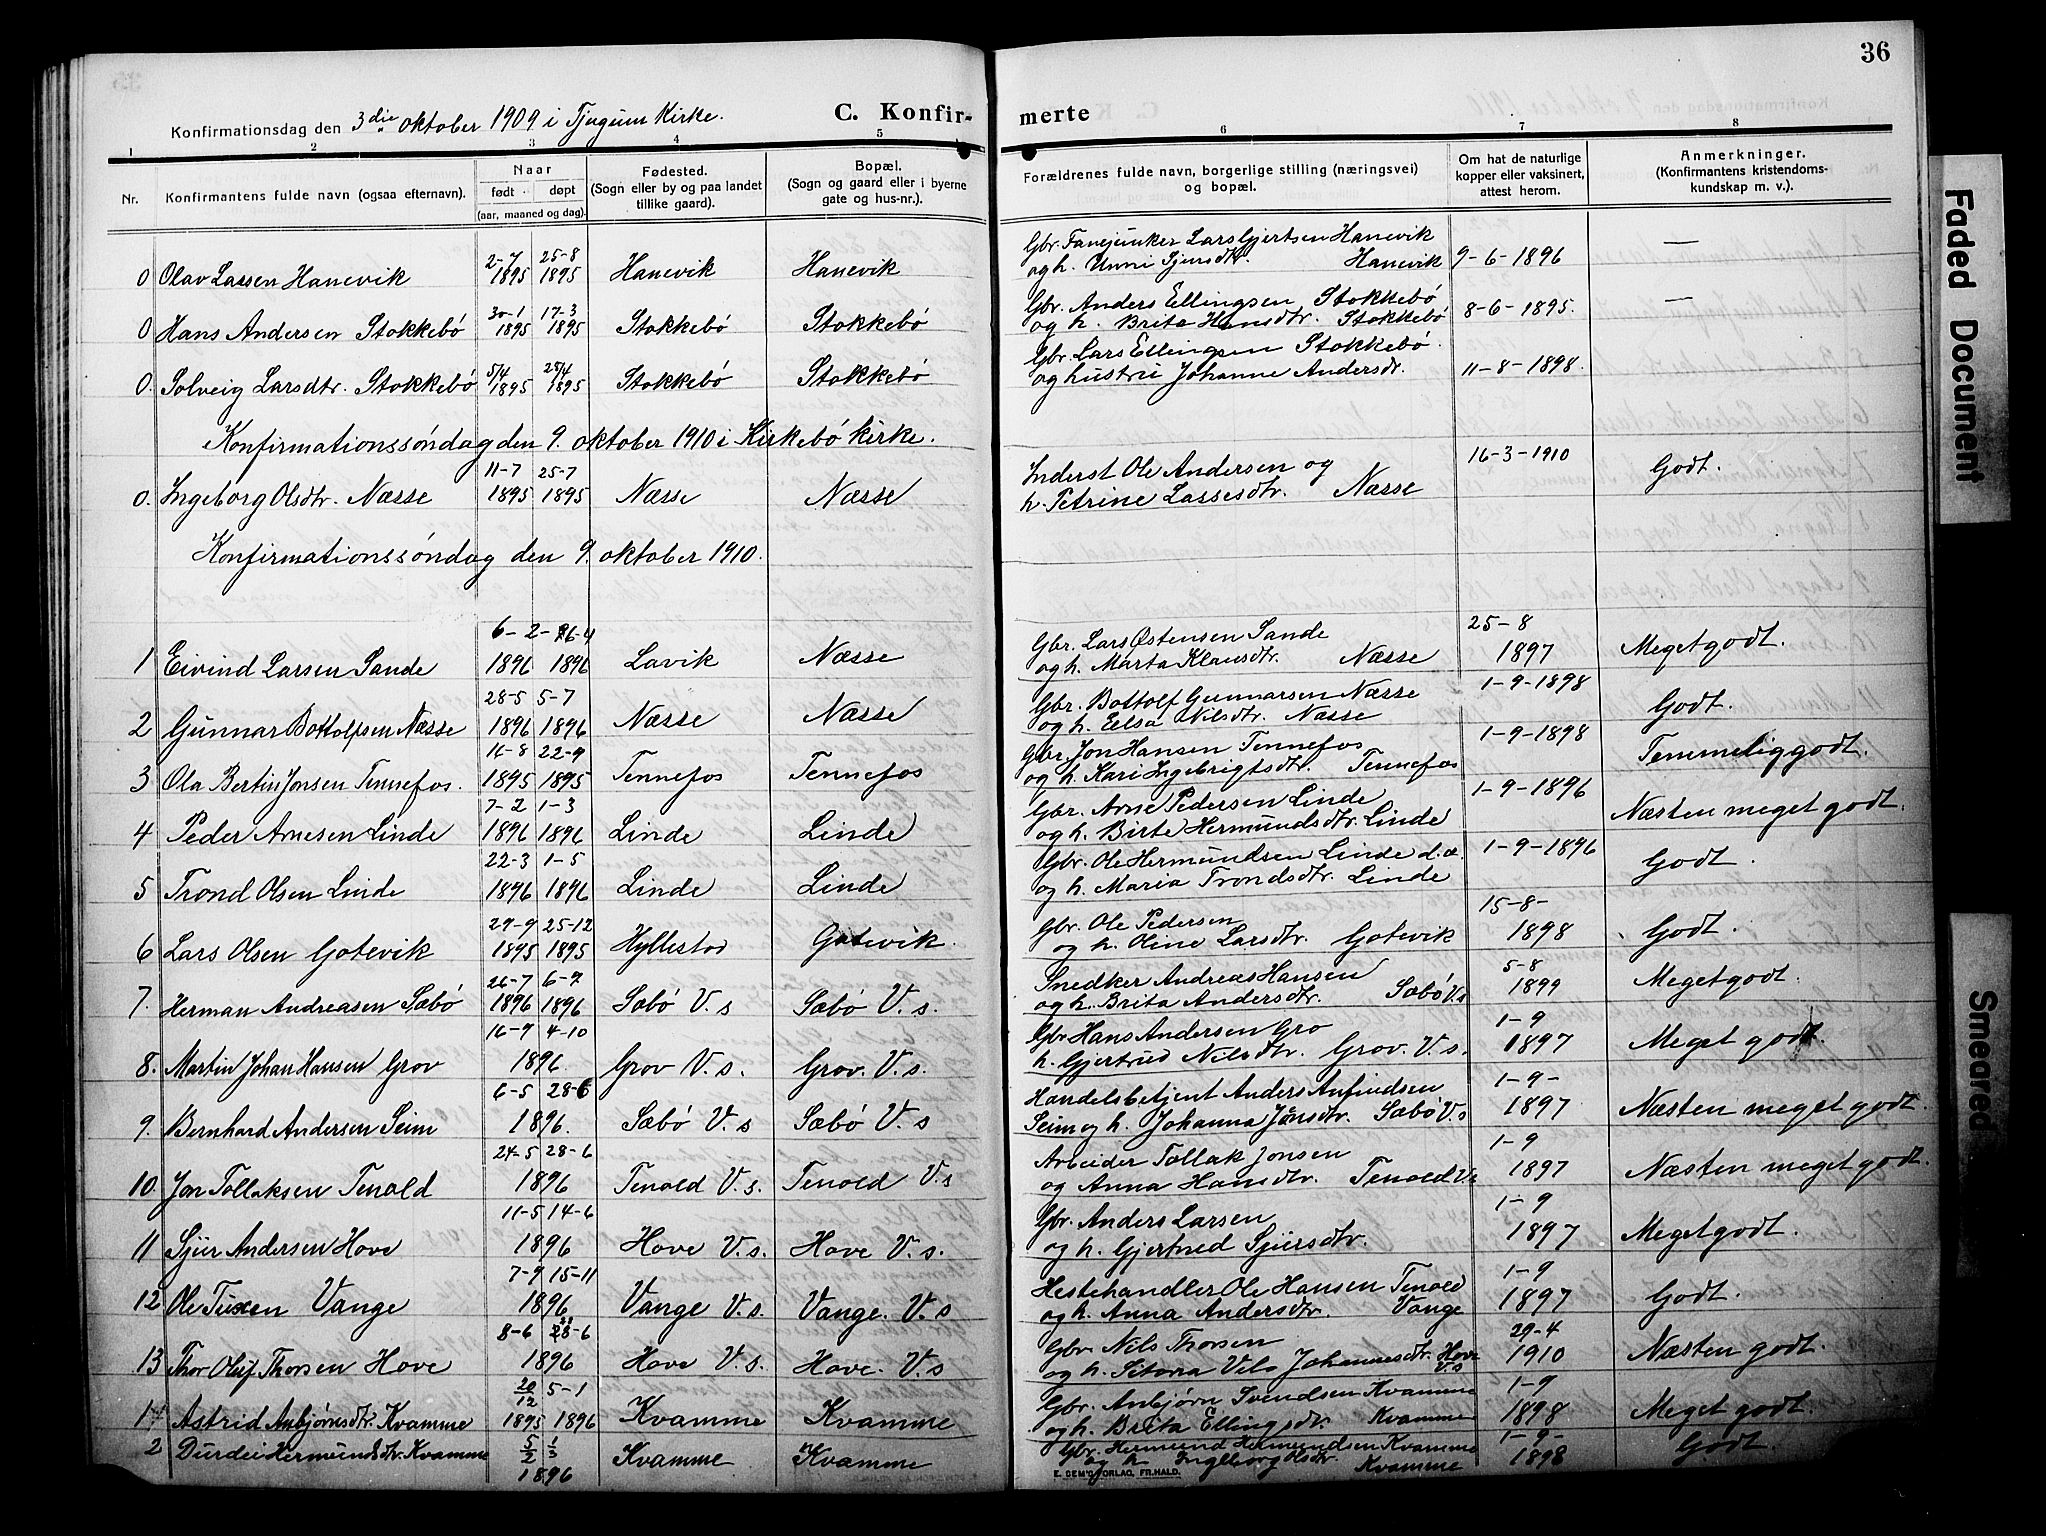 36
Konfirmationsdag den 3die oktober 1909 i Tjugum Kirke.
C. Konfir- merte
1 2 3 4 5 6 7 8
Nr.
Konfirmantens fulde navn (ogsaa efternavn).
Naar
født døpt
(aar, maaned og dag).
Fødested.
(Sogn eller by og paa landet
tillike gaard).
Bopæl.
(Sogn og gaard eller i byerne
gate og hus-nr.).
Forældrenes fulde navn, borgerlige stilling (næringsvei)
og bopæl.
Om hat de naturlige
kopper eller vaksinert,
attest herom.
Anmerkninger.
(Konfirmantens kristendoms-
kundskap m. v.).
2-7 25-8 Gbr. Fanejunker Lars Gjertsen Hanevik
0 Olav Lassen Hanevik 1895 1895 Hanevik Hanevik og h. Unni Sjursdtr. Hanevik 9-6-1896 —
30-1 17-3 Gbr. Anders Ellingsen Stokkebö
0 Hans Andersen Stokkebö 1895 1895 Stokkebö Stokkebö og h. Brita Hansdtr. Stokkebö 8-6-1895. —
5/4 25/4 Gbr. Lars Ellingsen Stokkebö.
0. Solveig Larsdtr. Stokkebö 1895 1895 Stokkebö Stokkebö og hustru Johanne Andersdr. 11-8-1898.
Konfirmationssöndag den 9. oktober 1910 i Kirkebö kirke.
11-7 25-7 Inderst Ole Andersen og 16-3-1910 Godt.
0. Ingeborg Olsdtr. Næsse 1895 1895 Næsse Næsse h. Petrine Lassesdtr. Næsse
Konfirmationssöndag den 9. oktober 1910.
6-2- 16-4 Gbr. Lars Østensen Sande 25-8
1 Eivind Larsen Sande 1896 1896 Lavik Næsse og h. Marta Klausdtr. Næsse 1897 Meget godt.
28-5 5-7 Gbr. Bottolf Gunnarsen Næsse 1-9-1898
2 Gunnar Bottolfsen Næsse 1896 1896 Næsse Næsse og h. Eelsa Nilsdtr. Næsse Godt.
16-8 22-9 Gbr. Jon Hansen Tennefos 1-9-1898
3 Ola Bertin Jonsen Tennefos. 1895 1895 Tennefos Tennefos og h. Kari Ingebrigtsdtr. Tennefos Temmelig godt.
7-2 1-3 Gbr. Arne Pedersen Linde 1-9-1896
4 Peder Arnesen Linde 1896 1896 Linde Linde og h. Birte Hermundsdtr. Linde Næsten meget godt.
22-3 1-5 Gbr. Ole Hermundsen Linde d.æ. 1-9-1896
5 Trond Olsen Linde 1896 1896 Linde Linde og h. Maria Trondsdtr. Linde Godt.
29-9 25-12 Gbr. Ole Pedersen 15-8-
6 Lars Olsen Gotevik 1895 1895 Hyllestad Gotevik. og h. Oline Larsdtr. Gotevik 1898 Godt.
26-7 6-9 Snedker Andreas Hansen 5-8
7. Herman Andreasen Sæbö 1896 1896 Sæbö V. s Sæbö V. s. og h. Brita Andersdtr. Sæbö V. s 1899 Meget godt.
16-9 4-10 Gbr Hans Andersen Gro 1-9
8. Martin Johan Hansen Grov 1896. Grov V. s. Grov. V. s. h. Gjertrud Nilsdtr. Grov. V. s. 1897 Meget godt.
6-5 28-6 Handelsbetjent Anders Anfindsen 1-9-
9. Bernhard Andersen Seim 1896. Sæbö V. s Sæbö V. s Seim og h. Johanna Jónsdtr. Sæbö V. s 1897 Næsten meget godt.
24-5 28-6 Arbeider Tollak Jonsen 1-9
10. Jon Tollaksen Tenold 1896 Tenold V. s. Tenold V. s og Anna Hansdtr. Tenold V. s 1897 Næsten meget godt.
11-5 14-6 Gbr. Anders Larsen 1-9
11 Sjur Andersen Hove 1896 Hove V. s. Hove V. s. og h. Gjertrud Sjursdtr. 1897 Meget godt.
7-9 15-11 Hestehandler Ole Hansen Tenold 1-9
12 Ole Tuxen Vange 1896 Vange V. s. Vange. V. s og h. Anna Andersdtr. Vange 1897 Godt.
8-6 28-6 Gbr. Nils Thorsen 29-4
13 Thor Oluf Thorsen Hove 1896 Hove V. s. Hove. V. s og h. Johannesdtr. Hove V. s 1910 Næsten godt.
20/12 5-1 Gbr. Anbjørn Svendsen Kvamme 1-9
1 Astrid Anbjørnsdtr. Kvamme 1895 1896 Kvamme Kvamme og h. Brita Ellingsdtr. Kvamme 1898 Meget godt.
5/2 1/3 Gbr. Hermund Hermundsen Kvamme 1-9-
2 Durdei Hermundsdtr. Kvamme 1896 Kvamme Kvamme og h Ingeborg Olsdtr Kvamme 1898 Godt.
E. SEM'S FORLAG, FR.HALD.
Faded Document
Smeared